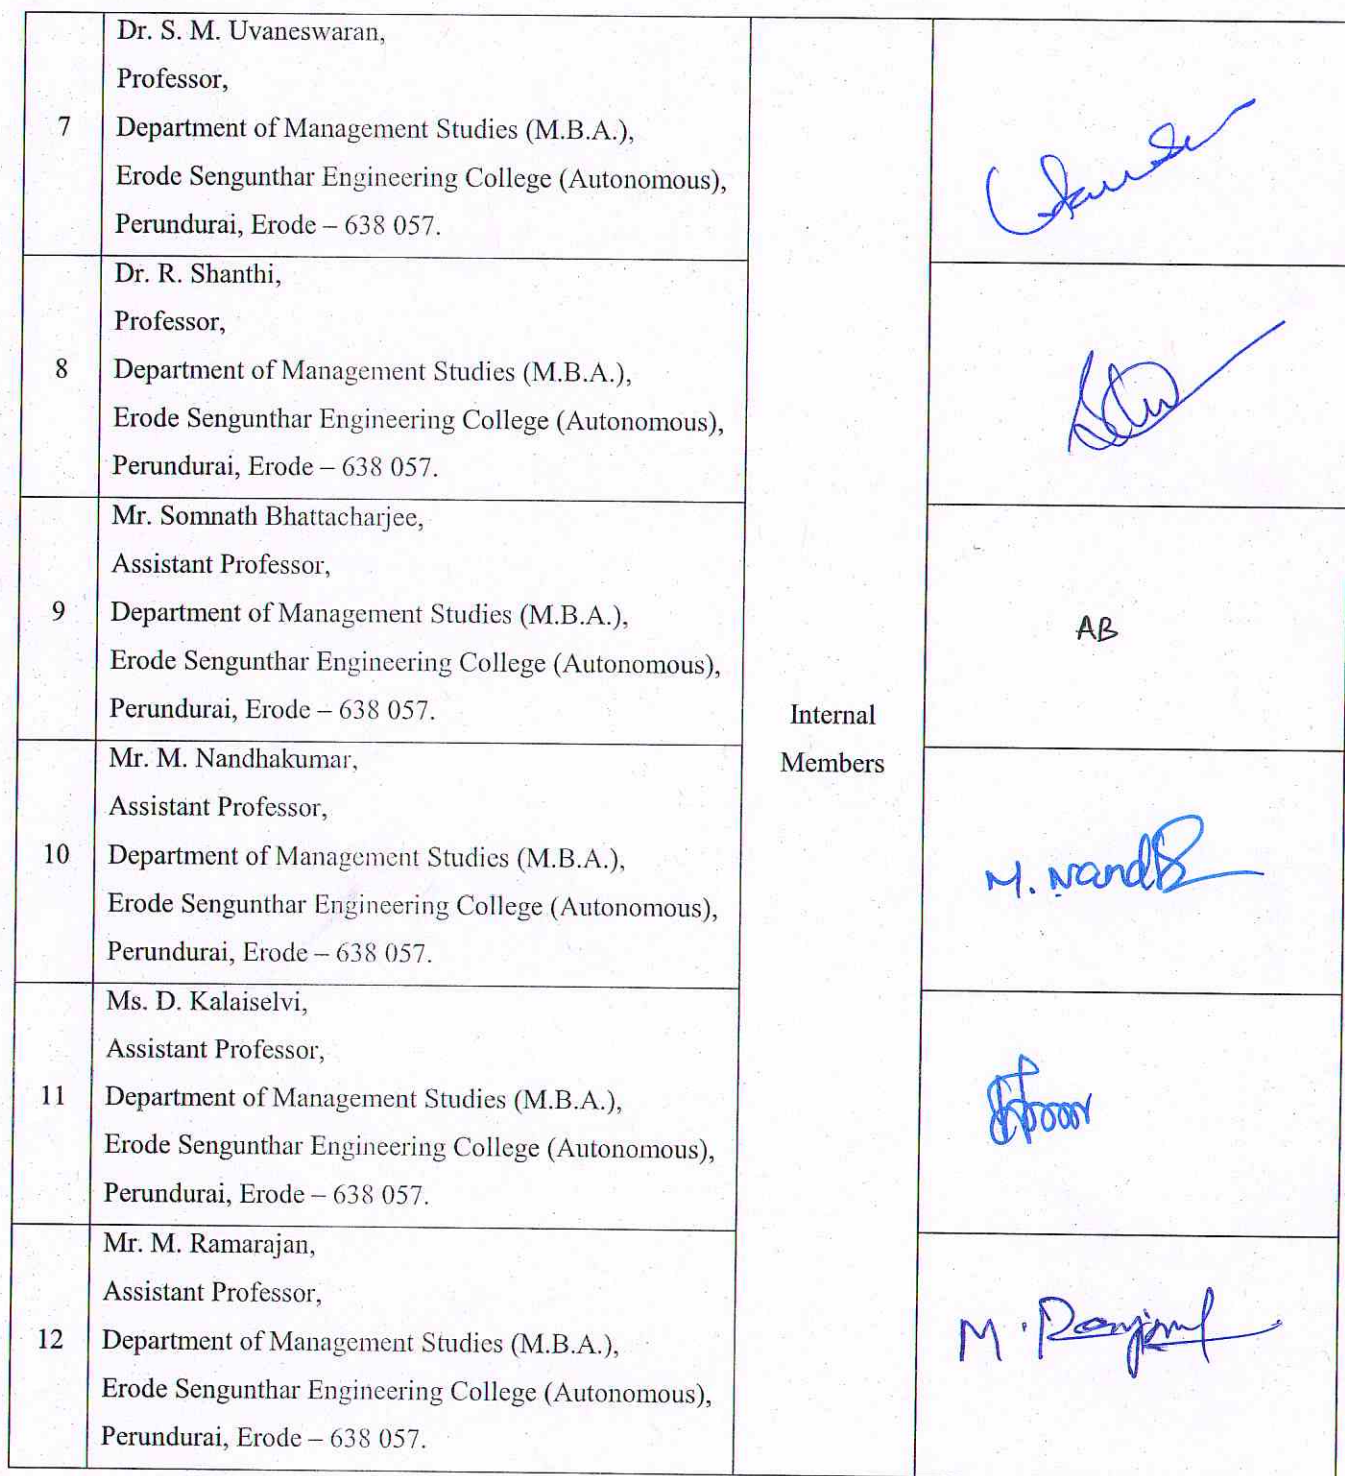 Dr. S. M. Uvaneswaran,
Professor,
7
Department of Management Studies (M.B.A.),
Erode Sengunthar Engineering College (Autonomous),
Perundurai, Erode – 638 057.
Dr. R. Shanthi,
Professor,
8
Department of Management Studies (M.B.A.),
Erode Sengunthar Engineering College (Autonomous),
Perundurai, Erode – 638 057.
Mr. Somnath Bhattacharjee,
Assistant Professor,
9
Department of Management Studies (M.B.A.),
Erode Sengunthar Engineering College (Autonomous),
Perundurai, Erode – 638 057.
AB
Internal
Members
Mr. M. Nandhakumar,
Assistant Professor,
10
Department of Management Studies (M.B.A.),
Erode Sengunthar Engineering College (Autonomous),
Perundurai, Erode – 638 057.
M. Nand
Ms. D. Kalaiselvi,
Assistant Professor,
11
Department of Management Studies (M.B.A.),
Erode Sengunthar Engineering College (Autonomous),
Perundurai, Erode – 638 057.
Mr. M. Ramarajan,
Assistant Professor,
12
Department of Management Studies (M.B.A.),
Erode Sengunthar Engineering College (Autonomous),
Perundurai, Erode – 638 057.
M.